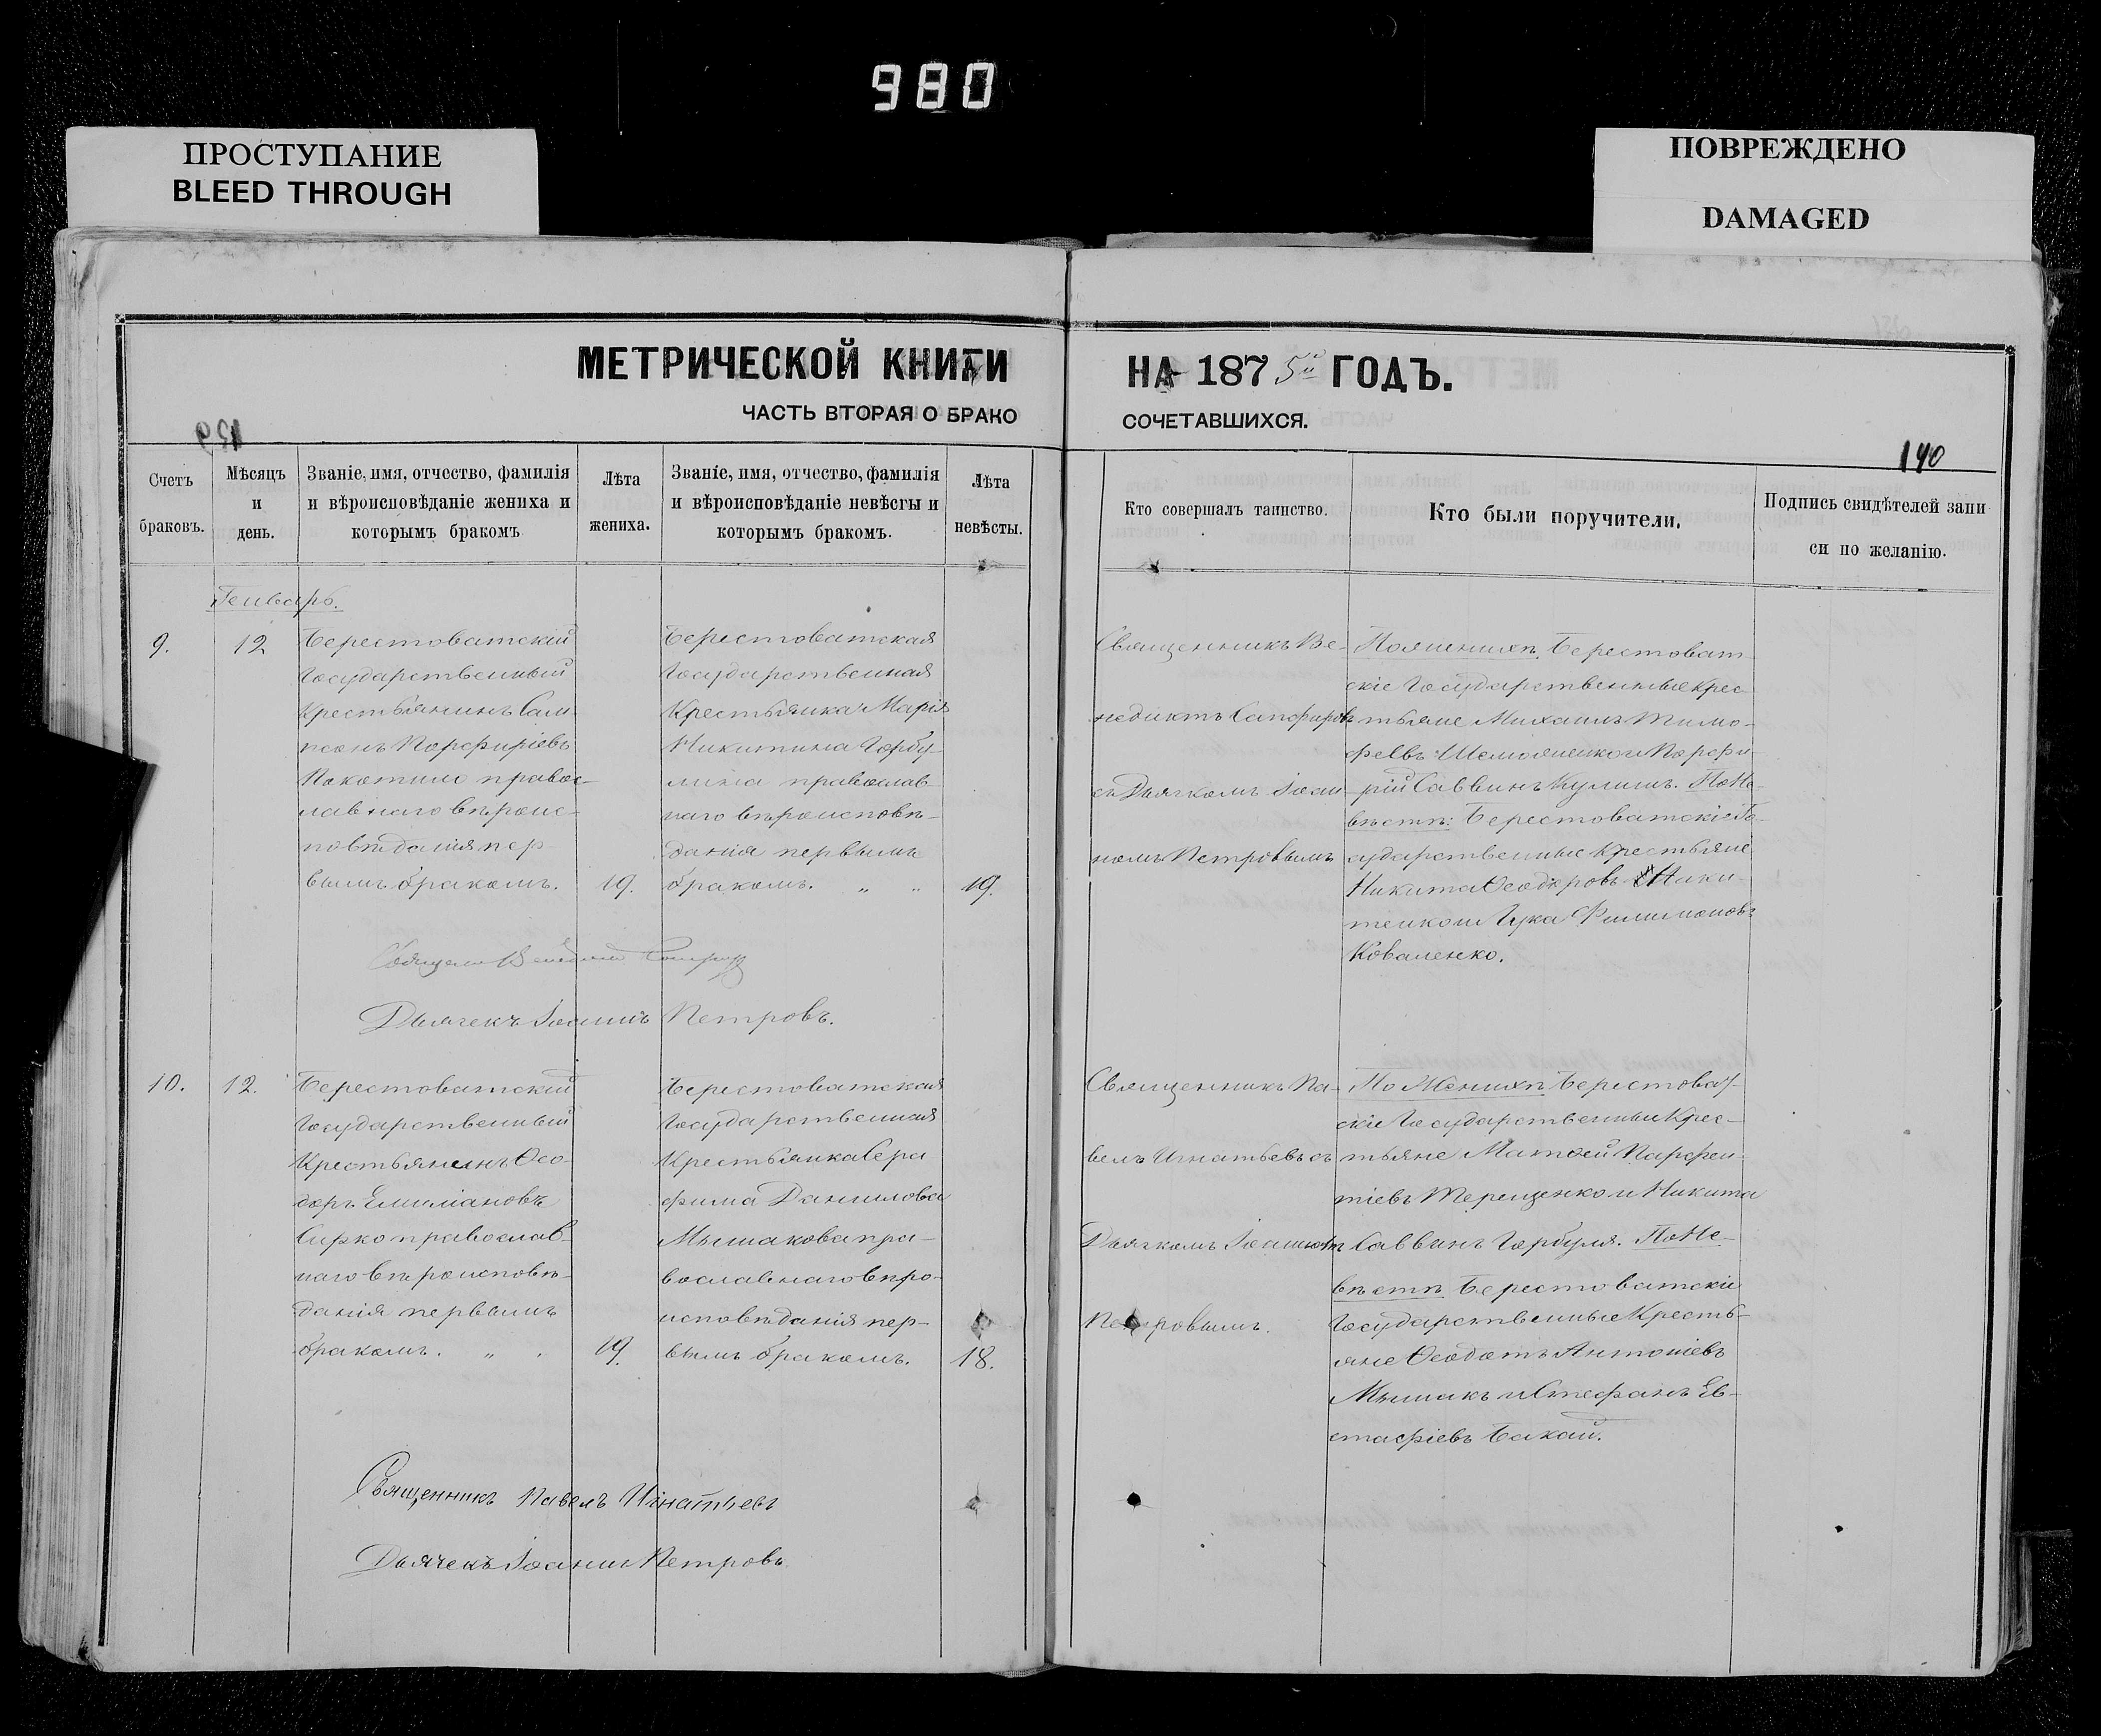 980
ПРОСТУПАНИЕ
BLEED THROUGH
ПОВРЕЖДЕНО
DAMAGED
МЕТРИЧЕСКОЙ КНИГИ НА 1875й ГОДЪ.
ЧАСТЬ ВТОРАЯ О БРАКО СОЧЕТАВШИХСЯ.
140
Счетъ
браковъ.
Мѣсяцъ
и
день.
Званіе, имя, отчество, фамилія
и вѣроисповѣданіе жениха и
которымъ бракомъ
Лѣта
жениха.
Званіе, имя, отчество, фамилія
и вѣроисповѣданіе невѣсты и
которымъ бракомъ.
Лѣта
невѣсты.
Кто совершалъ таинство.
Кто были поручители.
Подпись свидѣтелей запи
си по желанію.
Генварь.
9.
12
Берестоватскій
Государственный
Крестьянинъ Сам
псонъ Порфиріевъ
Покотило правос-
лавнаго вѣроис-
повѣданія пер-
вымъ бракомъ.
19.
Берестоватская
Государственная
Крестьянка Марія
Никитина Горбу-
лина православ
наго вѣроисповѣ-
данія первымъ
бракомъ. „ „
19.
Священникъ Ве-
недиктъ Сапфировъ
съ Дьячкомъ Іоан
номъ Петровымъ
По женихѣ Берестоват
скіе Государственные Крес
тьяне Михаилъ Тимо-
феевъ и Порфи-
рій Саввинъ Кулишъ. По Не-
вѣстѣ: Берестоватскіе Го-
сударственные Крестьяне
Никита Ѳеодоровъ Ники-
тенко и Лука Филимоновъ
Коваленко.
Священ Венедиктъ Сапфиров
Дьячекъ Іоаннъ Петровъ.
10.
12.
Берестоватскій
Государственный
Крестьянинъ Ѳео-
доръ Емиліановъ
Сирко православ-
наго вѣроисповѣ-
данія первымъ
бракомъ. „ .
19.
Берестоватская
Государственная
Крестьянка Сера
фима Данилова
Мышакова пра-
вославнаго вѣро-
исповѣданія пер-
вымъ бракомъ.
18.
Священникъ Па-
велъ Игнатьевъ съ
Дьячкомъ Іоанномъ
Петровымъ.
По Женихѣ Берестоват-
скіе Государственные Крес-
тьяне Матѳей Парфен-
тіевъ Терещенко и Никита
Саввинъ Горбуля. По Не-
вѣстѣ Берестоватскіе
Государственные Кресть-
яне Ѳеодотъ Антоніевъ
Мышакъ и Стефанъ Ев-
стафіевъ Бакай.
Священникъ Павелъ Игнатьевъ
Дьячекъ Іоаннъ Петровъ